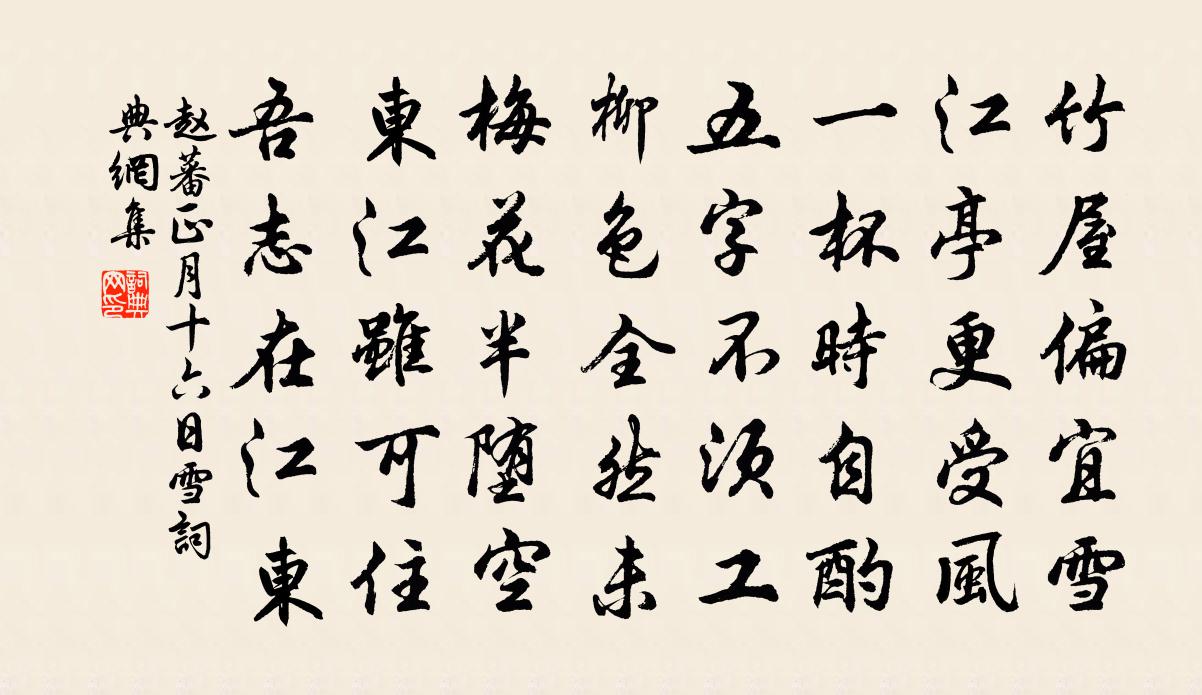 竹屋偏宜雪
江亭更受風
一杯時自酌
五字不須工
柳色全然未
梅花半堕空
東江雖可住
吾志在江東
赵蕃正月十六日雪詞
典網集
詞典網印